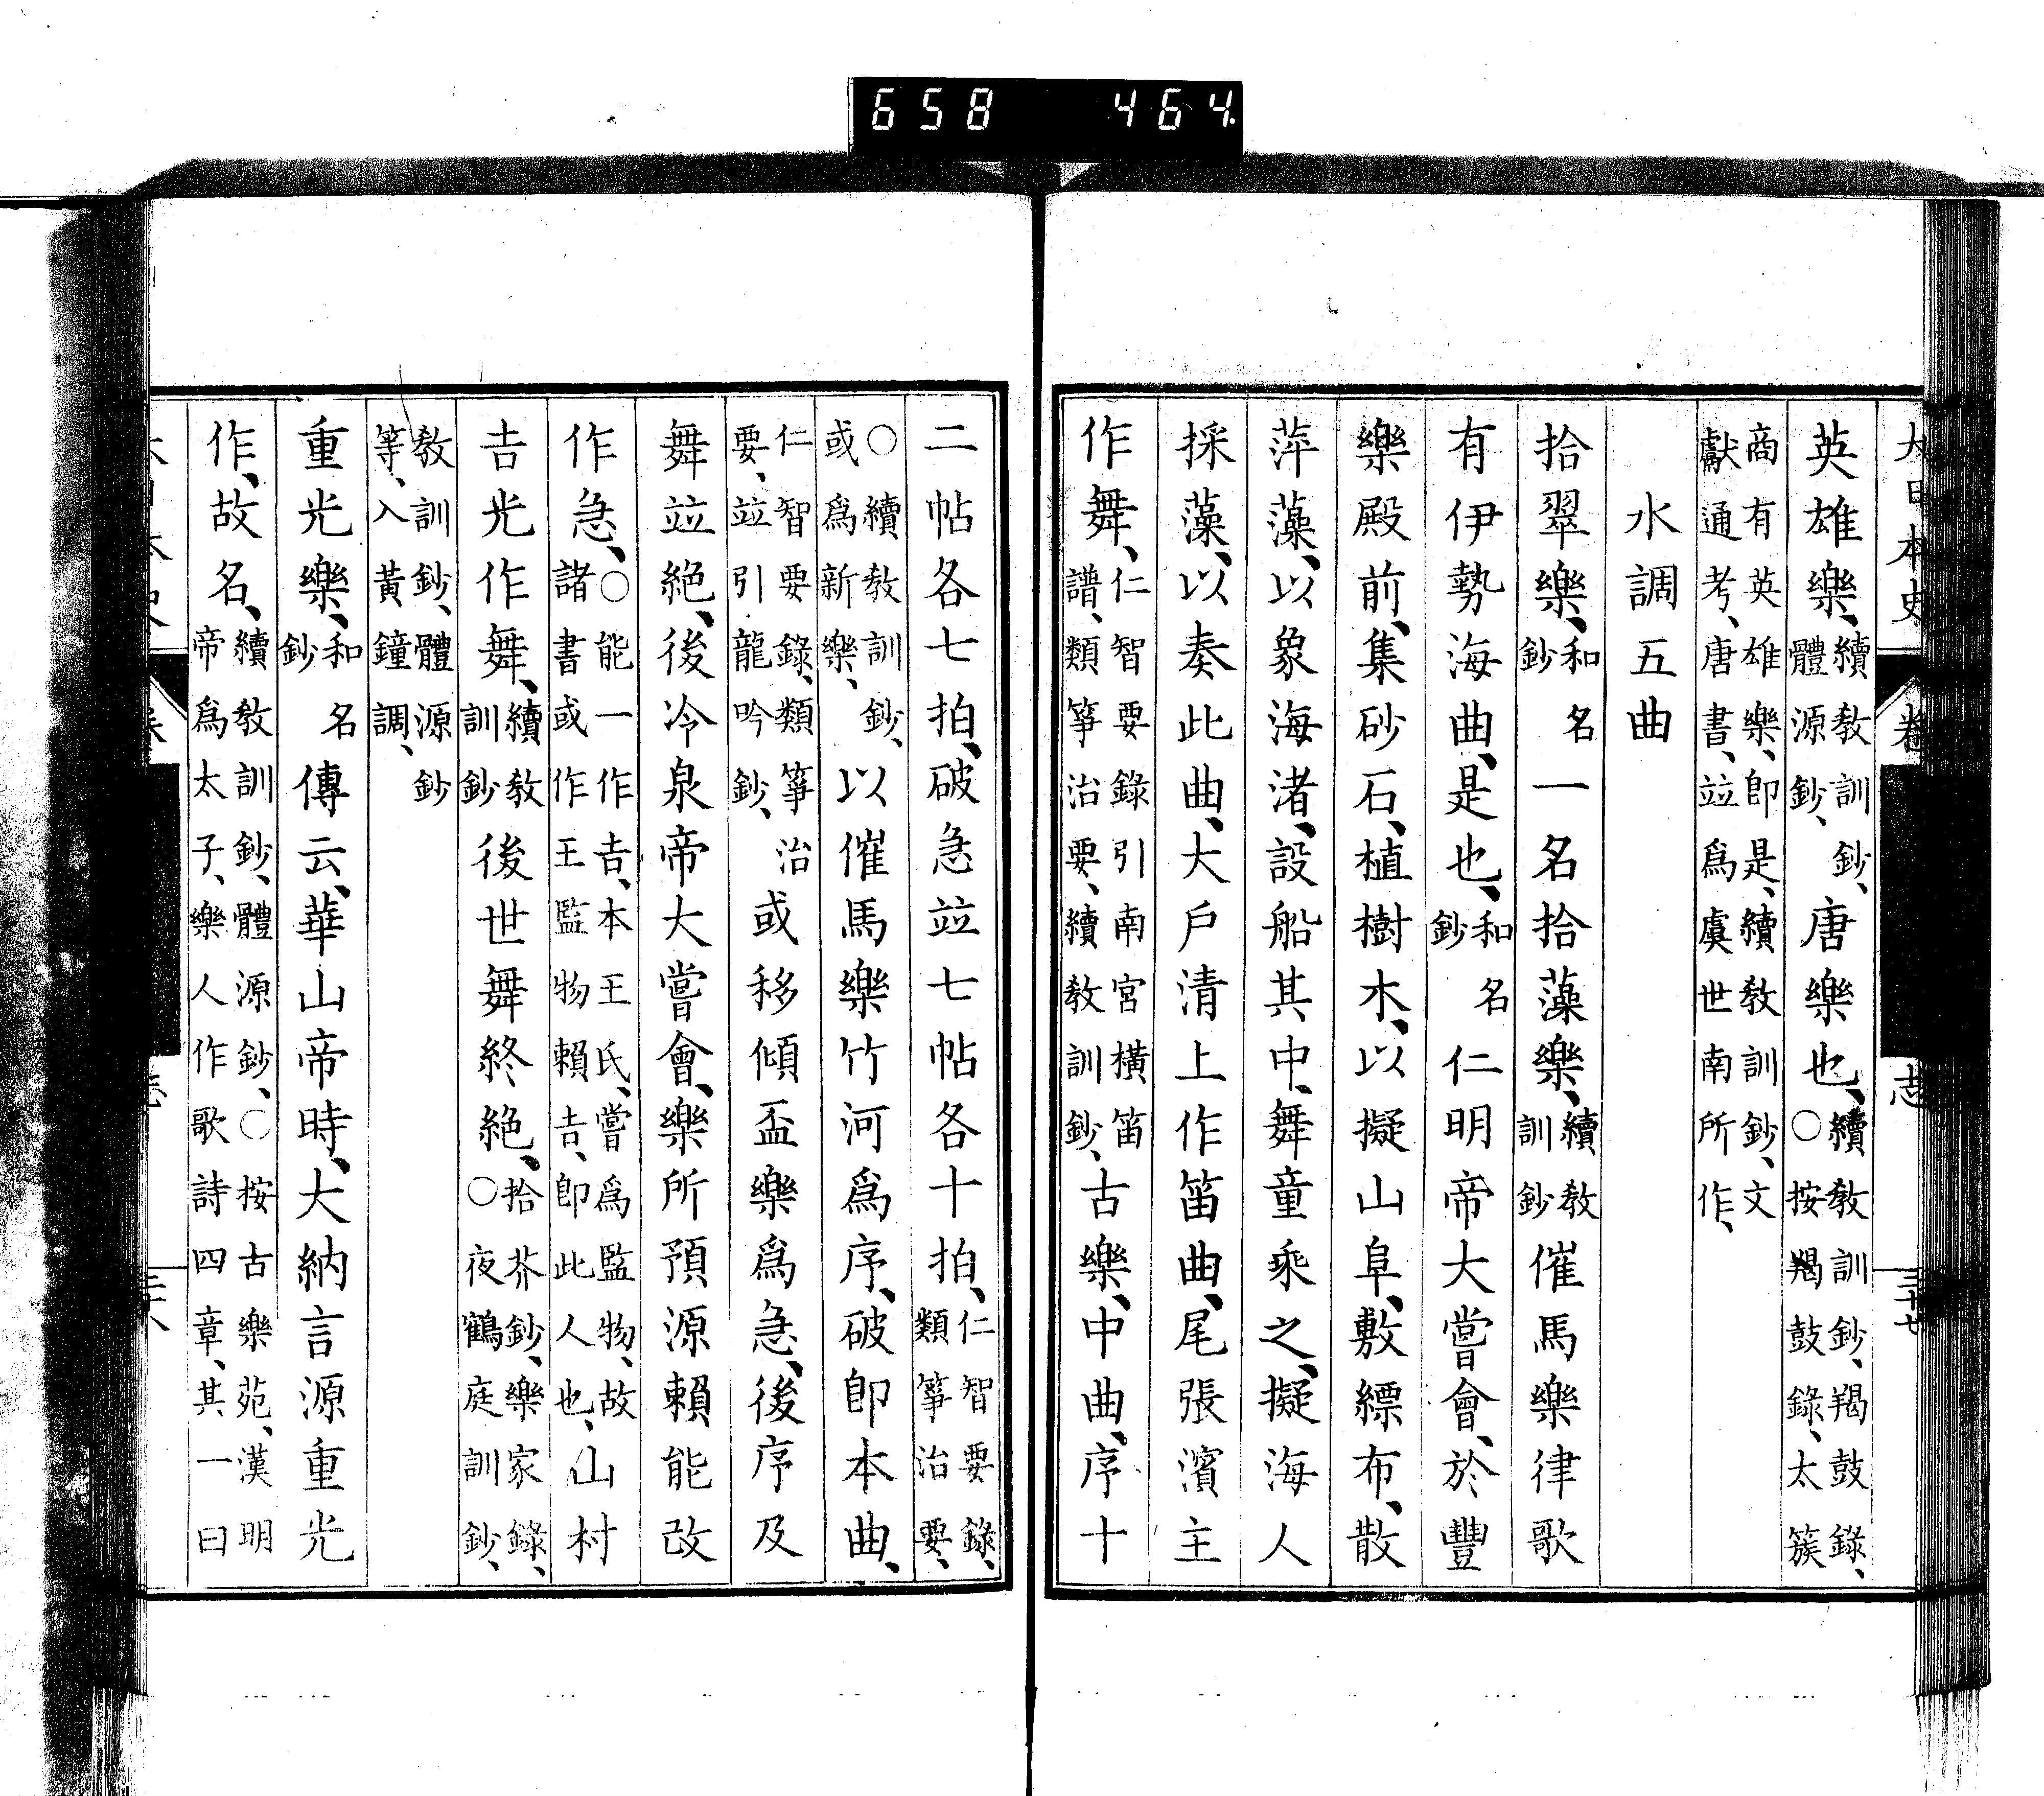 658 464.
大日本史 卷 志 三十七
英雄樂、續教訓鈔、體源鈔、唐樂也、續教訓鈔、羯鼓錄、○按羯鼓錄、太簇
商有英雄樂、卽是、續教訓鈔、文獻通考、唐書、竝爲虞世南所作、
水調五曲
拾翠樂、和名鈔一名拾藻樂、續教訓鈔催馬樂律歌
有伊勢海曲、是也、和名鈔仁明帝大嘗會、於豐
樂殿前、集砂石、植樹木、以擬山阜、敷縹布、散
萍藻、以象海渚、設船其中、舞童乘之、擬海人
採藻、以奏此曲、大戶淸上作笛曲、尾張濱主
作舞、仁智要錄引南宮橫笛譜、類箏治要、續教訓鈔、古樂、中曲、序十
二帖各七拍、破急竝七帖各十拍、仁智要錄、類箏治要、
○續教訓鈔、或爲新樂、以催馬樂竹河爲序、破卽本曲、
仁智要錄、類箏治要、竝引龍吟鈔、或移傾盃樂爲急、後序及
舞竝絕、後冷泉帝大嘗會、樂所預源賴能改
作急、○能一作吉、本王氏、嘗爲監物、故諸書或作王監物賴吉、卽此人也、山村
吉光作舞、續教訓鈔後世舞終絕、拾芥鈔、樂家錄、○夜鶴庭訓鈔、
教訓鈔、體源鈔等、入黃鐘調、
重光樂、和名鈔傳云、華山帝時、大納言源重光
作、故名、續教訓鈔、體源鈔、○按古樂苑、漢明帝爲太子、樂人作歌詩四章、其一曰